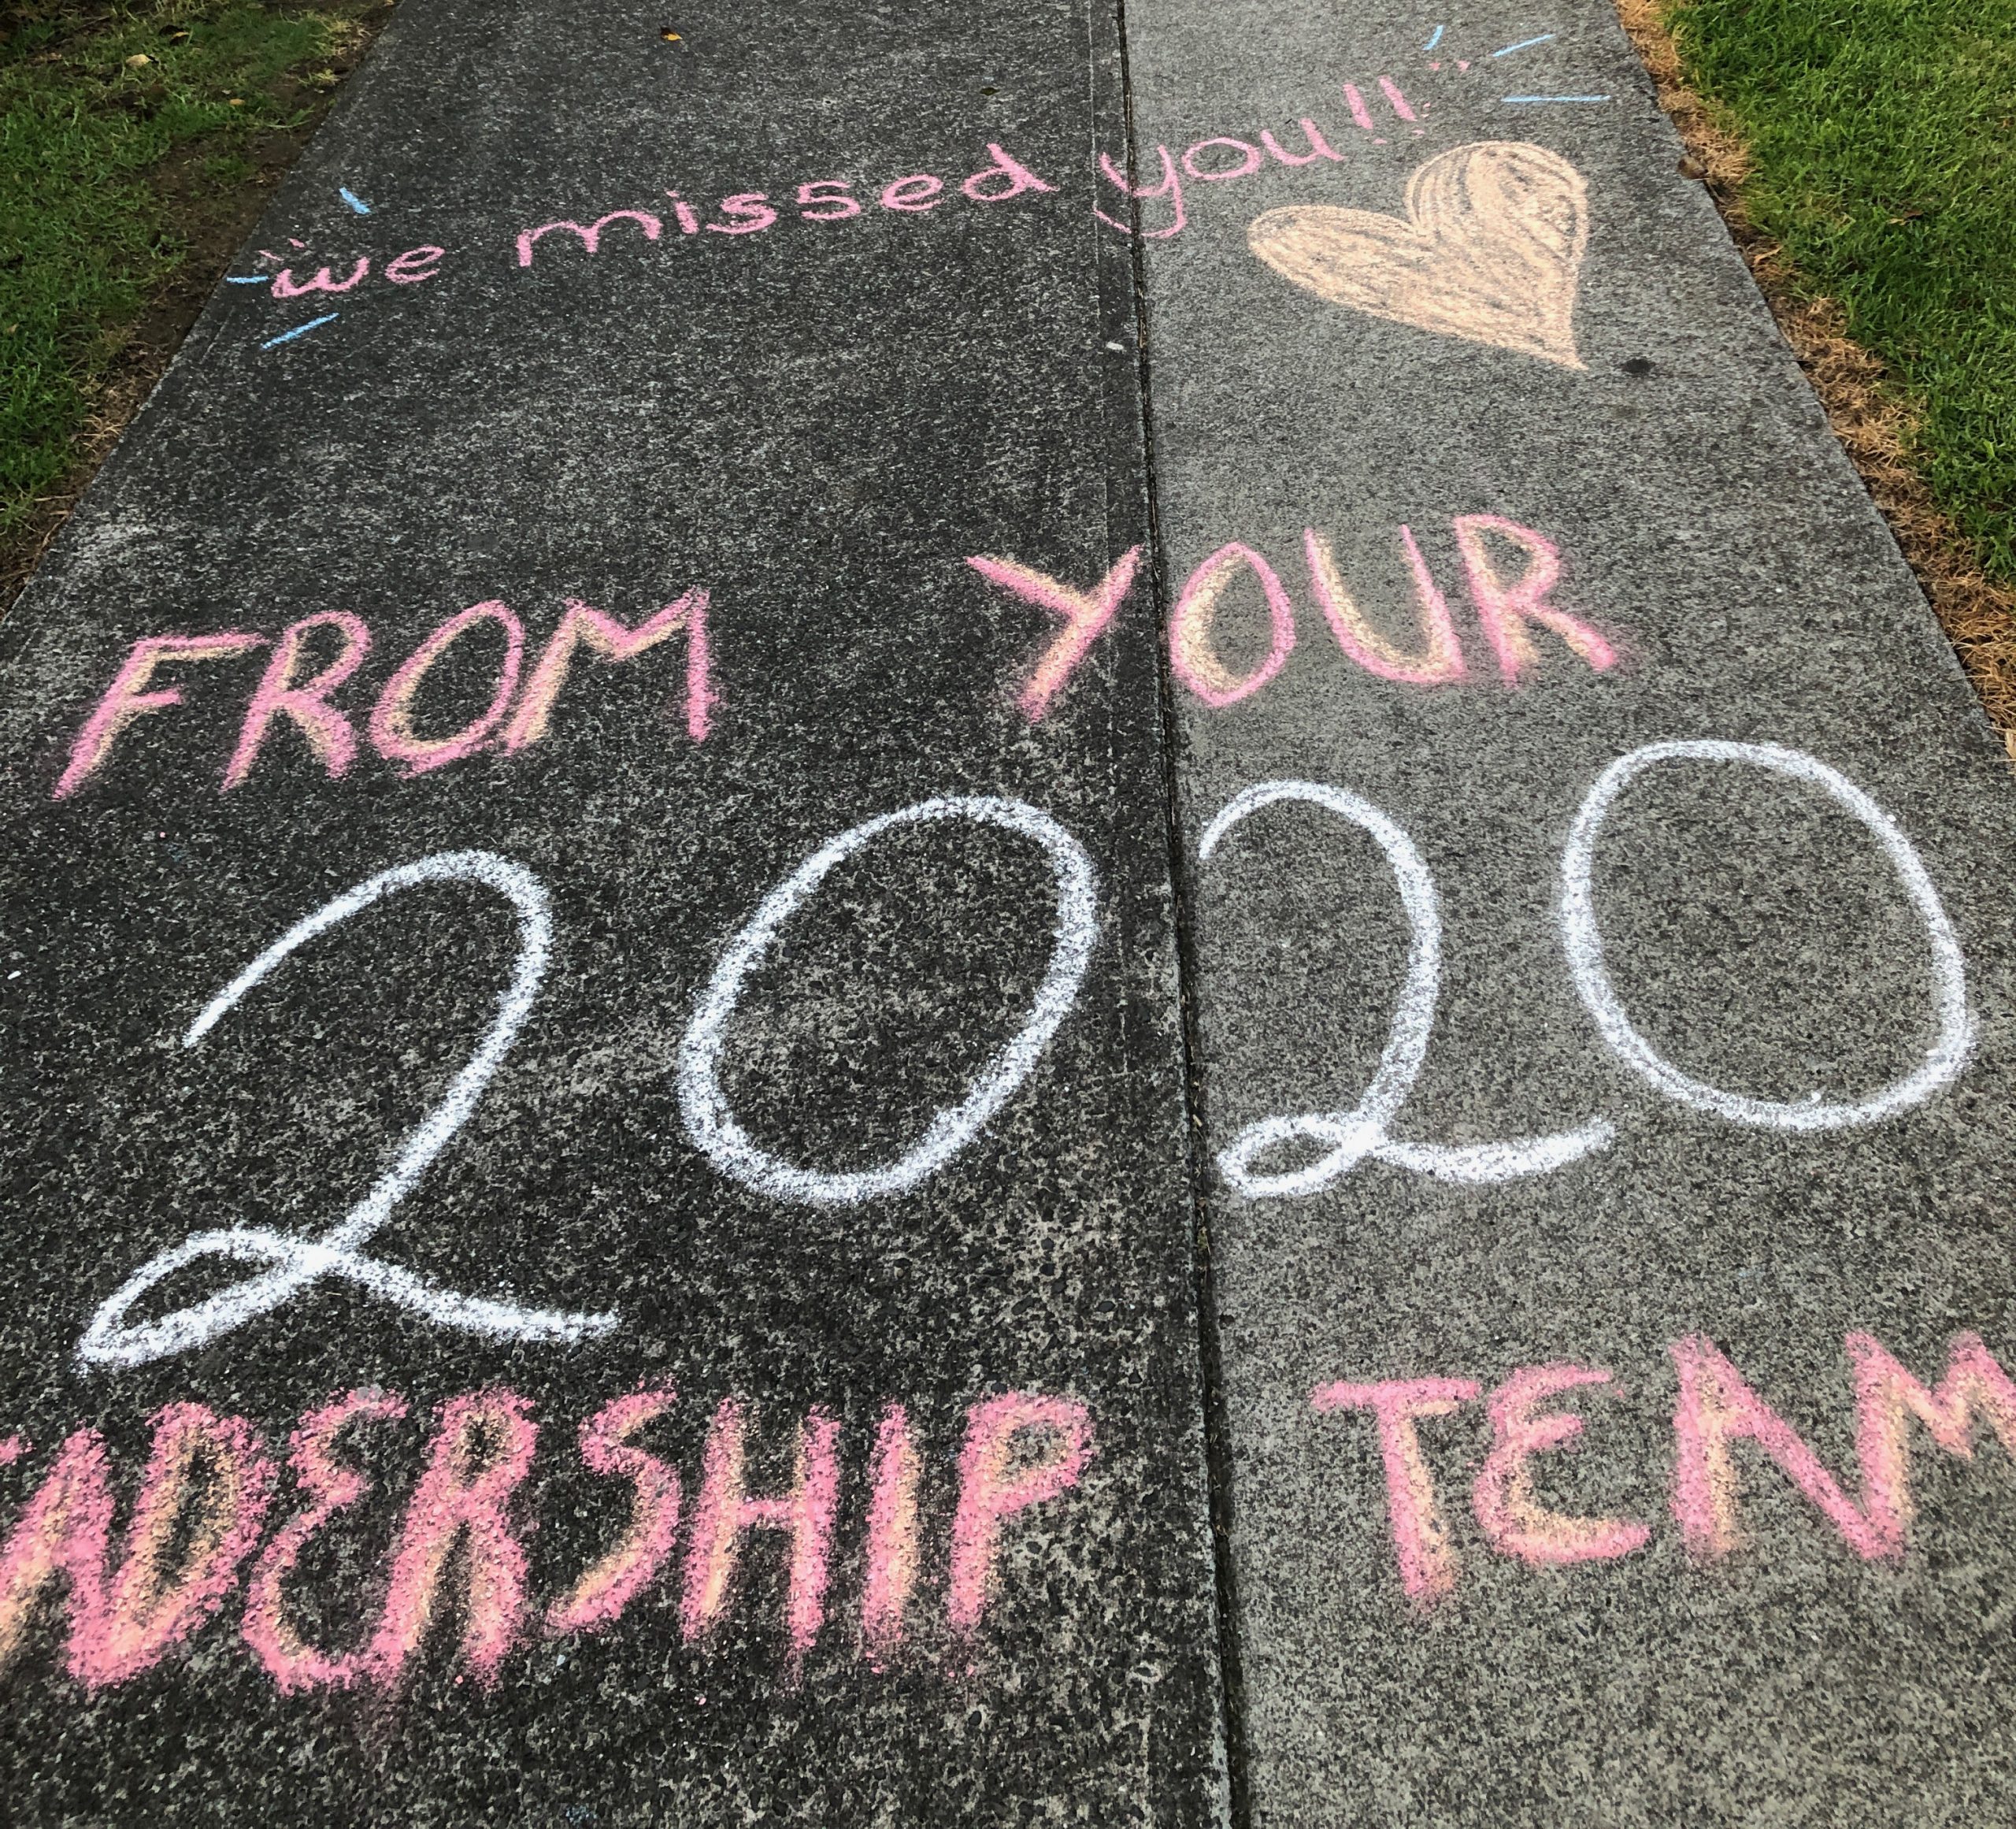 "we missed you!!"
FROM YOUR
2020
ADERSHIP TEAM